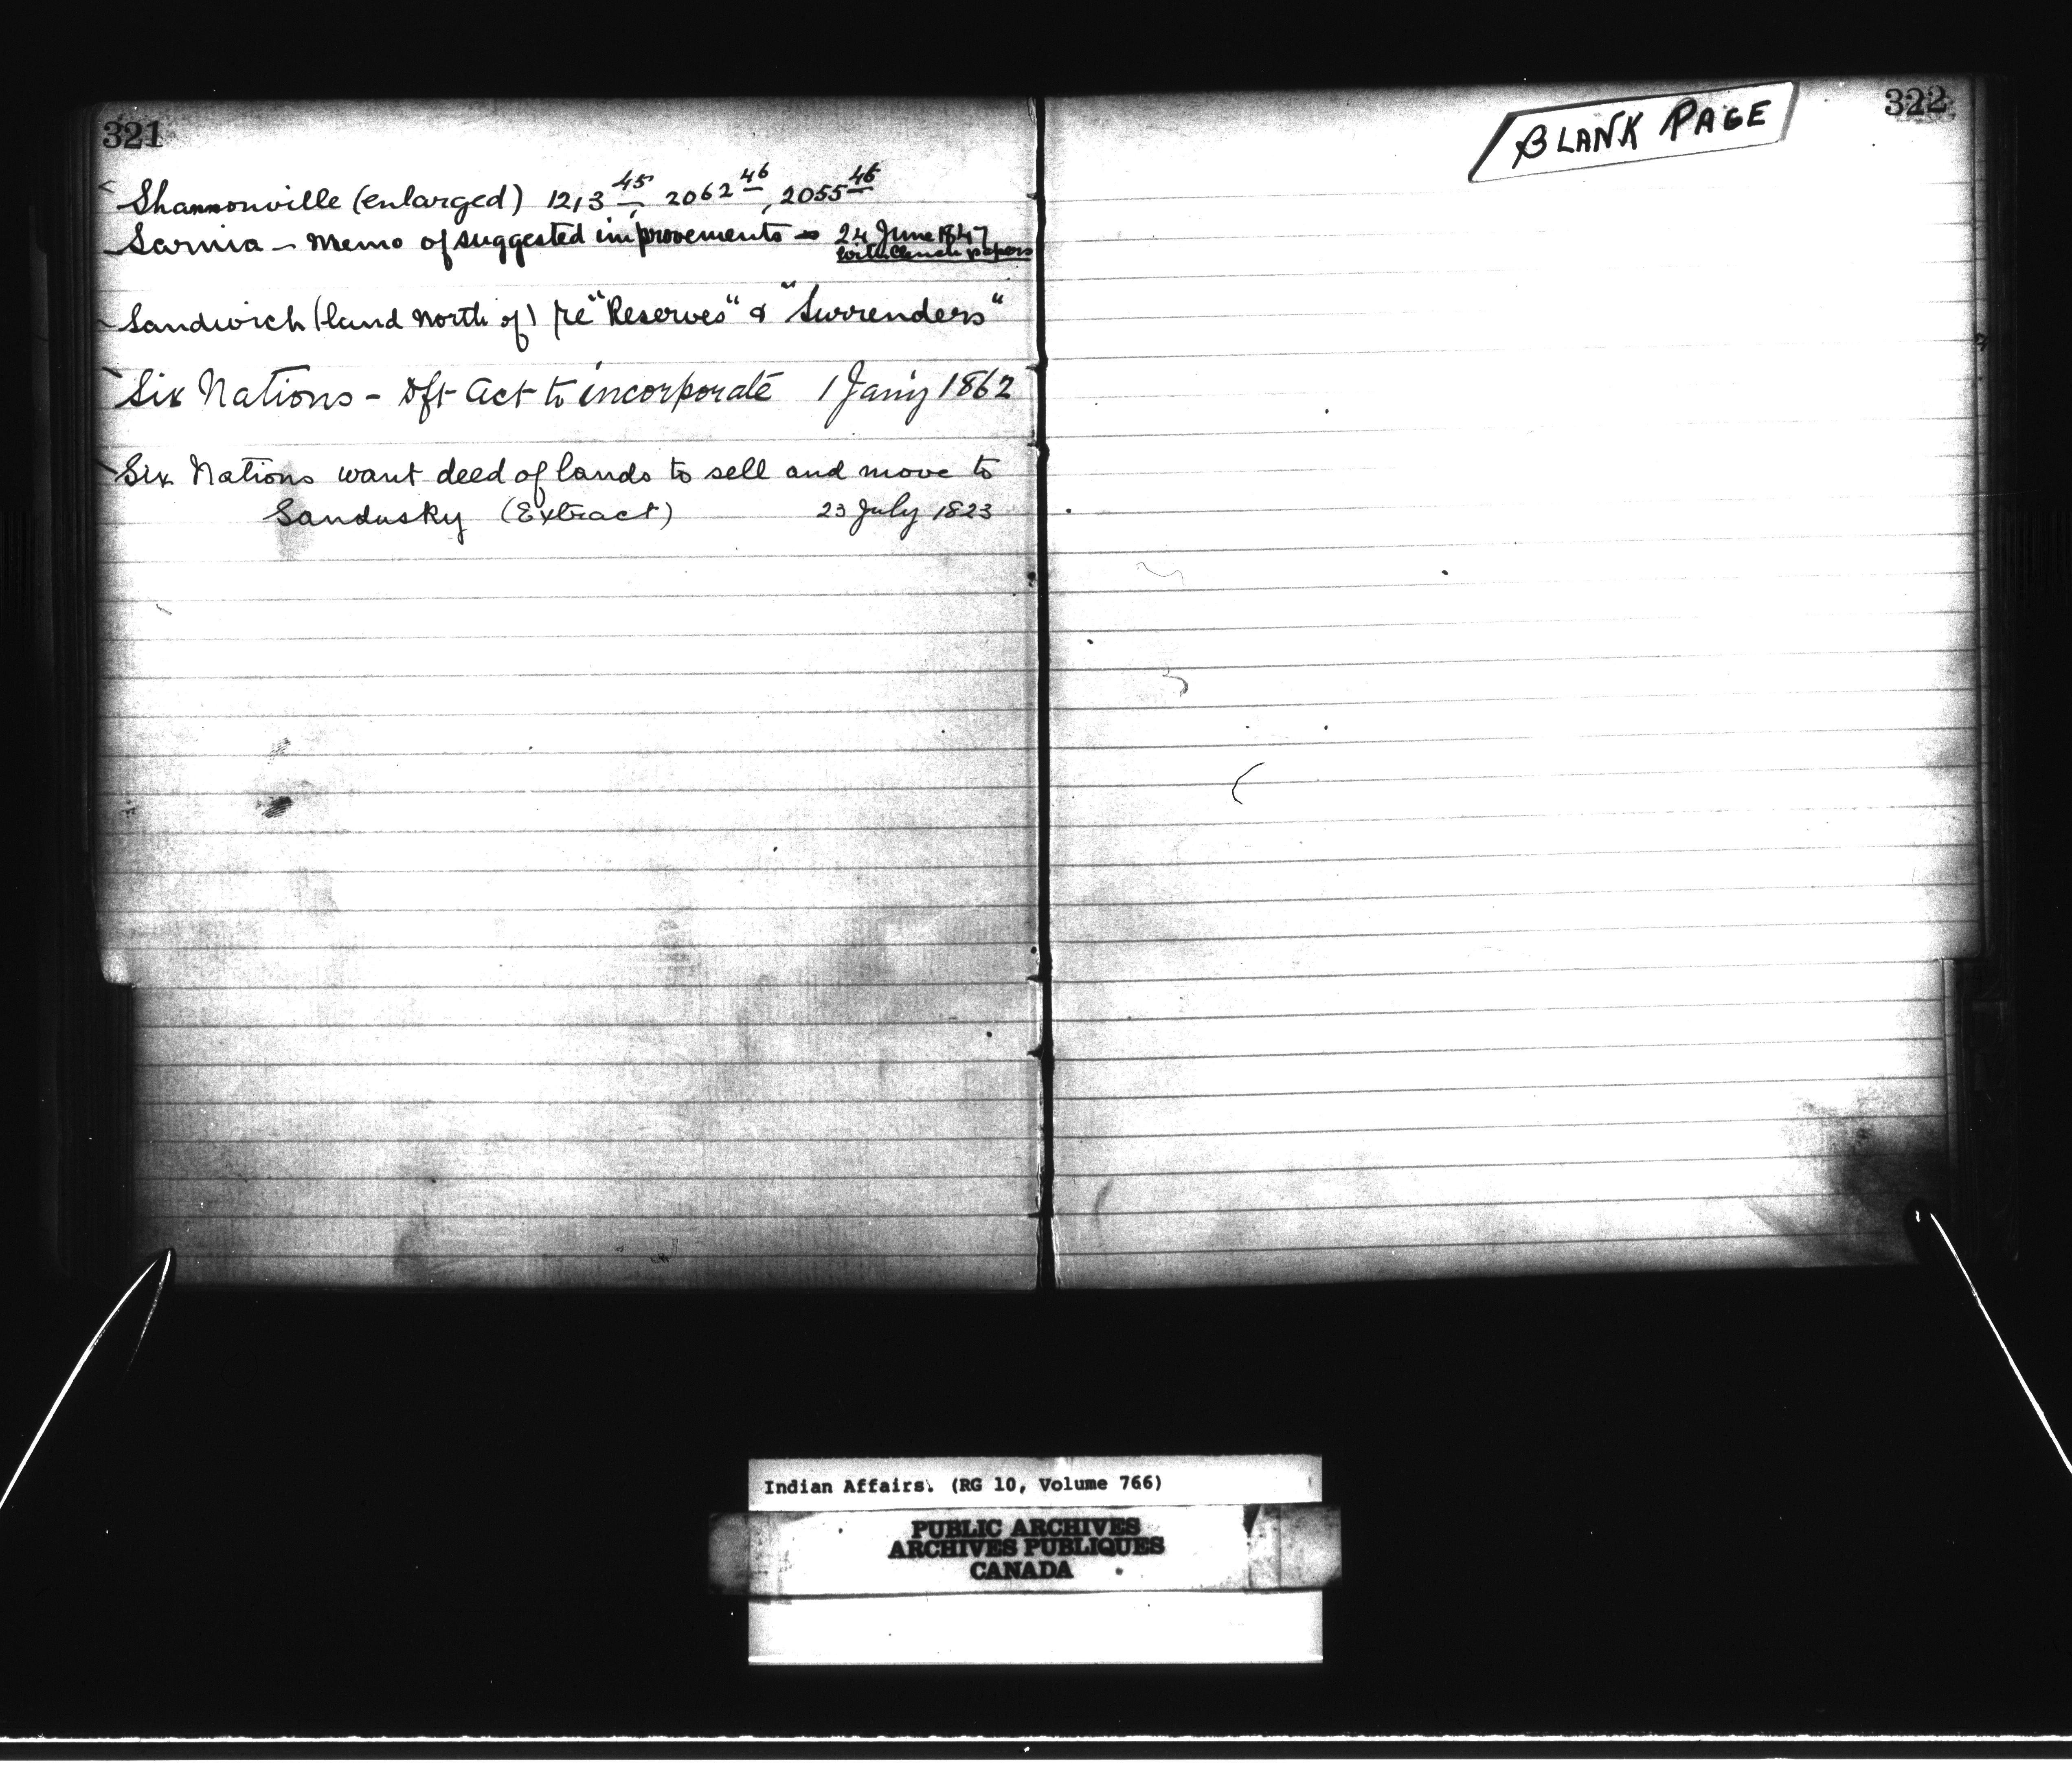 321
Shannonville (enlarged) 1213 45, 2062 46, 2055 46
Sarnia - Memo of suggested improvements - 24 June 1847
with Clench papers
Sandwich (land North of) re "Reserves" & "Surrenders"
Six Nations - Dft Act to incorporate 1 Jany 1862
Six Nations want deed of lands to sell and move to
Sandusky (Extract) 23 July 1823
BLANK PAGE
322
Indian Affairs. (RG 10, Volume 766)
PUBLIC ARCHIVES
ARCHIVES PUBLIQUES
CANADA